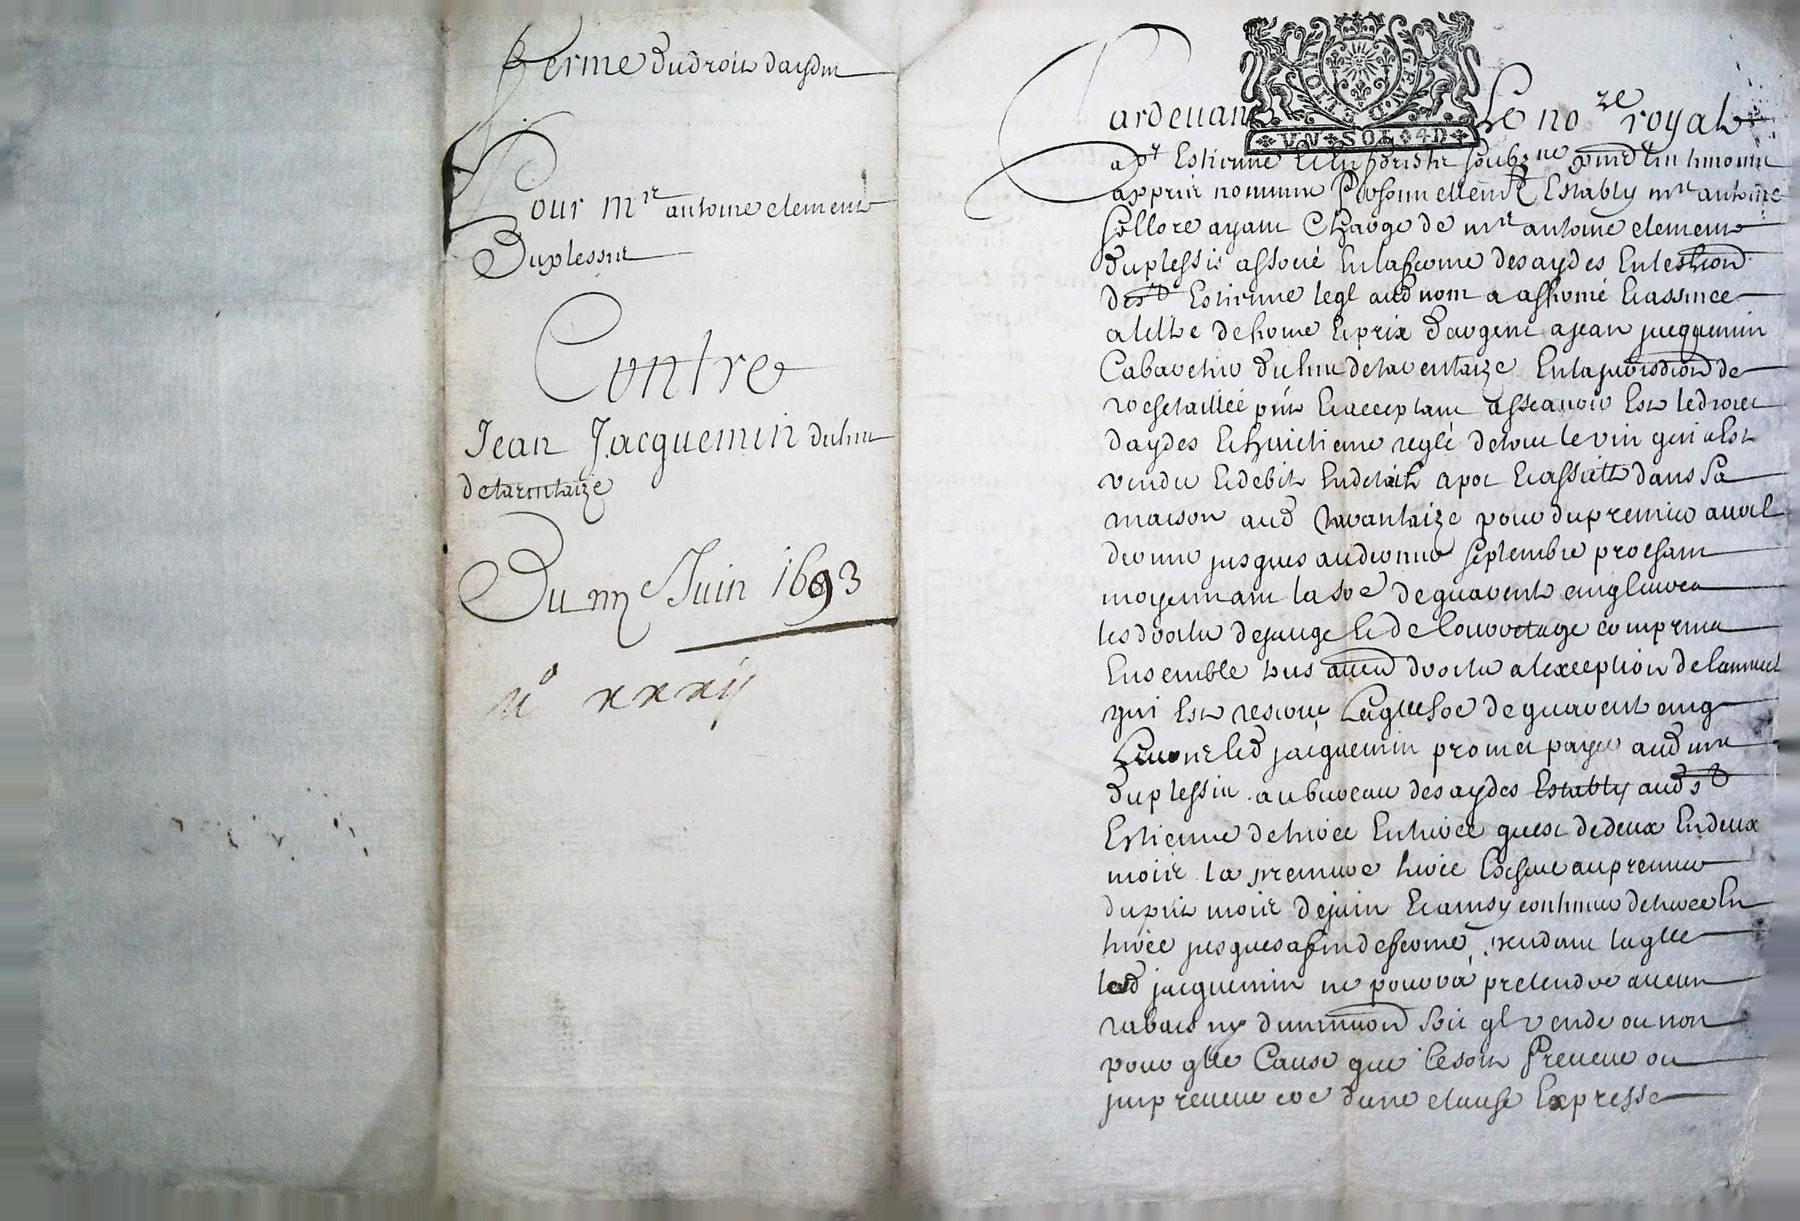 ferme du droit daydes
Pour mre antoine clement
Duplessis
Contre
Jean Jacquemin du lieu
de tarentaize
Du Juin 1693
n° xxxij
GEN. D
VN SOL 4D
Pardevant Le nore royal
a St Estienne soubzne
appres nommes Personnellemt Estably mre antoine
follore ayant Charge de mre antoine clement
duplessis associé En la ferme des aydes En lesliond
dud St Estienne leql aud nom a affermé Et assence
a tiltre de ferme Et prix d'argent a jean jacquemin
Cabaretier du lieu de tarentaize En la jurisdiond de
rochetaillée pnt Et acceptant asseavoir Est le droict
daydes Et huictieme reglé de tout le vin qui a Est
vendu Et debité En detail a pot Et assiette dans sa
maison aud tarantaize pour du premier avril
dernier jusques au dernier septembre prochain
moyennant la soe de quarente cinq livres
les droits de jauge Et de Courretage comprins
Ensemble tous autres droits a lexception de lannuel
qui Est reservé Laqlle soe de quarente cinq
Livres led jacquemin promet payer aud mre
duplessis au bureau des aydes Estably aud St
Estienne de tiers En tiers quest de deux En deux
mois la premiere Escheue au premier
du pnt mois de juin Et ainsy continuer de En
jusques a fin de ferme pendant laqlle
led jacquemin ne pourra pretendre aucun
rabais ny diminuond soit ql vende ou non
pour qlle Cause que ce soit Preveue ou
jmpreveue coe dune clause Expresse